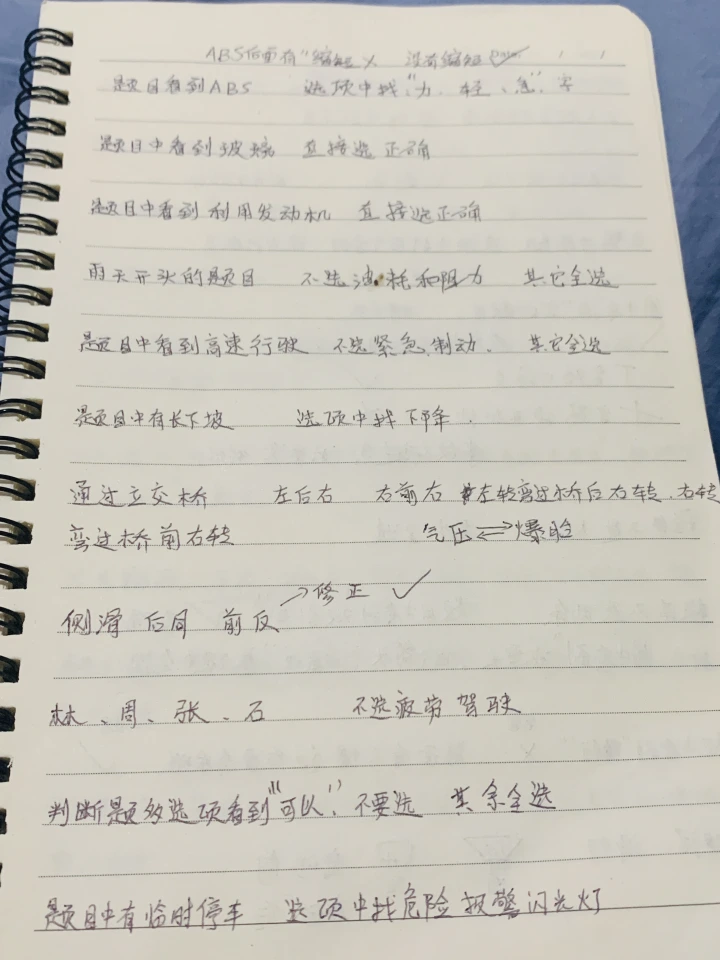 ABS后面有"缩短 X 没有缩短
题目看到ABS 选项中找"力、轻、急"字
题目中看到玻璃 直接选正确
题目中看到利用发动机 直接选正确
雨天开头的题目 不选油耗和阻力 其它全选
题目中看到高速行驶 不选紧急制动、 其它全选
题目中有长下坡 选项中找下降.
通过立交桥 左后右 右前右 左转弯过桥后右转.右转
弯过桥前右转 气压⇌爆胎
侧滑 后同 前反→修正 ✓
林、周、张、石 不选疲劳驾驶
判断题多选项看到"可以"、不要选 其余全选
题目中有临时停车 选项中找危险报警闪光灯